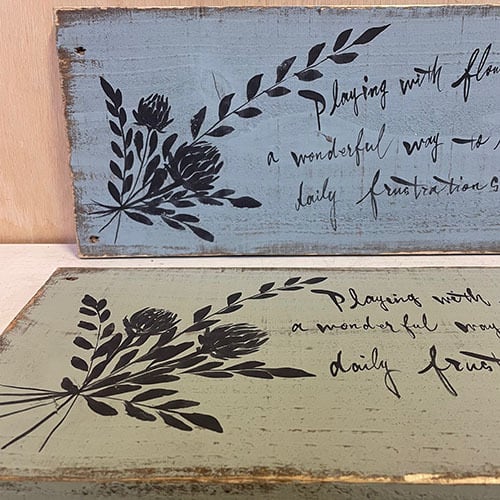 Playing with flow
a wonderful way to
daily frustrations
Playing with
a wonderful way
daily frust